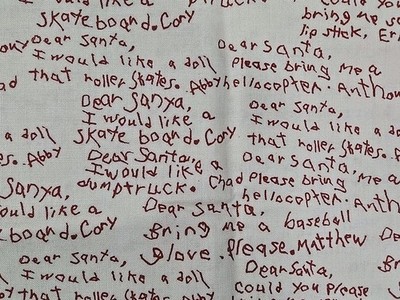 skateboard.Cory
could you
bring me so
lip stick, Er
ony
Dear Santa,
I would like a doll
that roller skates. Abby
ad
Dear Santa,
please bring me a
hellocopter. Anthon
Dear Sanxa,
I would like a
skate board. Cory
Dear Santa,
I would like a doll
that roller skates.
a doll
es. Abby
Dear Santa,
I would like a
dumptruck. Chad
Dear Santa,
please bring me a
hellocopter. Anth
Sanxa,
ould like a
e board. Cory
Dear Santa,
Bring me a baseball
glove. please. Matthew
De
Dear Santa,
I would like a doll
that roller skates.
Dear Santa,
could you please